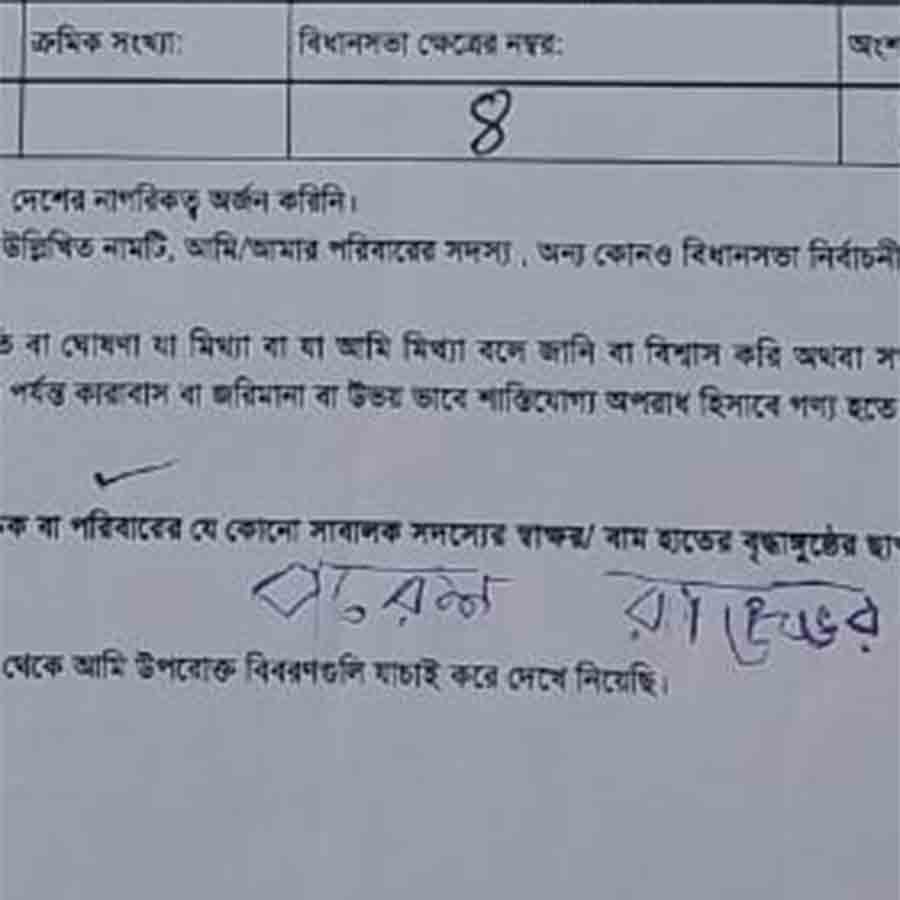 ক্রমিক সংখ্যা: বিধানসভা ক্ষেত্রের নম্বর: অংশ
8
দেশের নাগরিকত্ব অর্জন করিনি।
উল্লিখিত নামটি, আমি/আমার পরিবারের সদস্য , অন্য কোনও বিধানসভা নির্বাচনী
বা ঘোষণা যা মিথ্যা বা যা আমি মিথ্যা বলে জানি বা বিশ্বাস করি অথবা
পর্যন্ত কারাবাস বা জরিমানা বা উভয় ভাবে শাস্তিযোগ্য অপরাধ হিসাবে গণ্য হতে
বা পরিবারের যে কোনো সাবালক সদস্যের স্বাক্ষর/ বাম হাতের বৃদ্ধাঙ্গুষ্ঠের
থেকে আমি উপরোক্ত বিবরণগুলি যাচাই করে দেখে নিয়েছি।